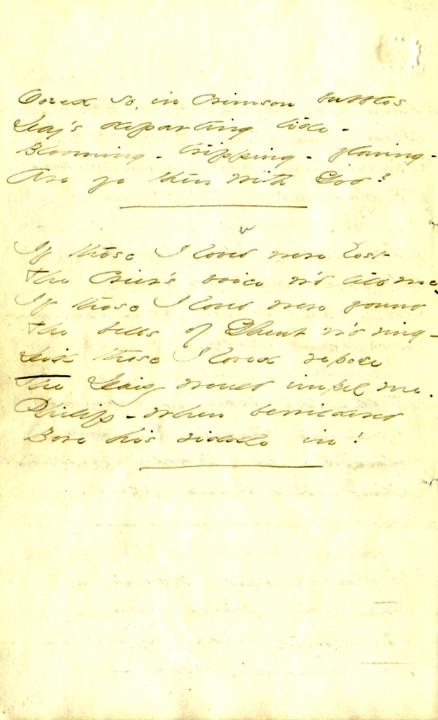 Oozed so, in Crimson bubbles
Day's departing tide -
Blooming - tripping - flowing -
Are ye then with God?
If those I loved were lost
The Crier's voice w'd tell me
If those I loved were found
The bells of Ghent w'd ring -
Did those I loved repose
The Daisy would impel me.
Philip - when bewildered
Bore his riddle in!